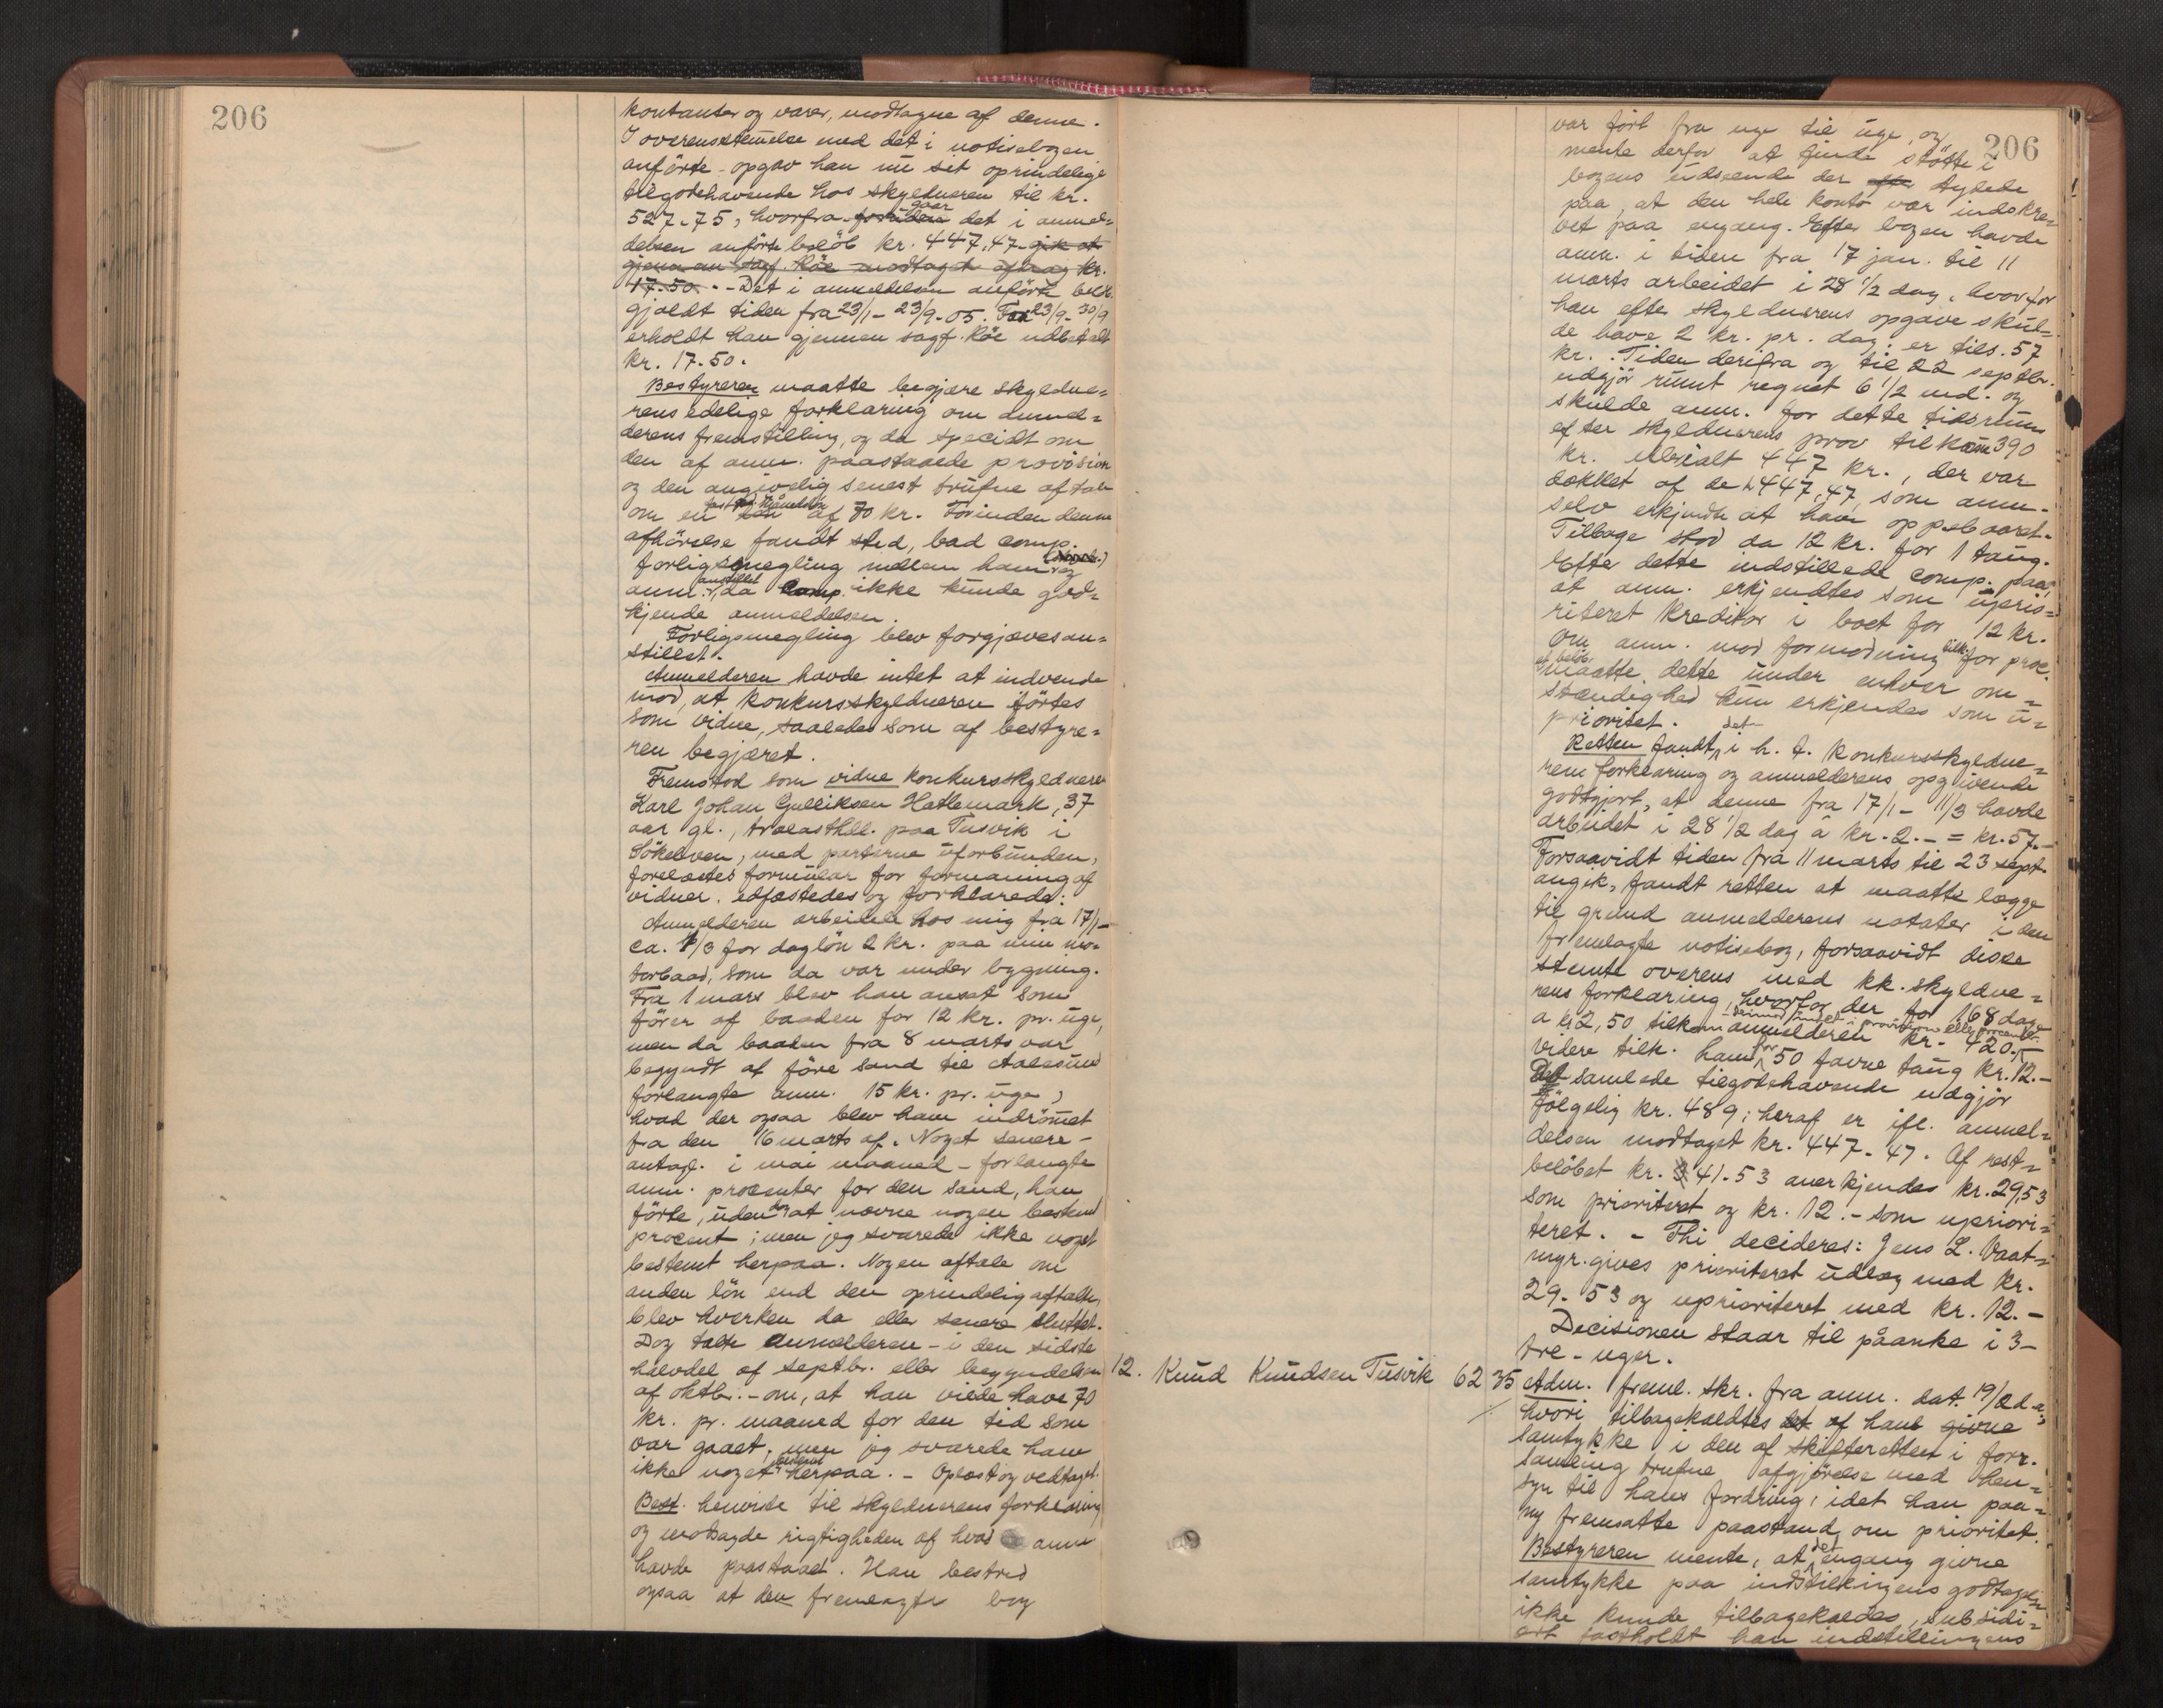 206
kontanter og varer, modtagne af denne.
I overensstemelse med det i notisebogen
anförte opgav han nu sit oprindelige
tilgodehavende hos skyldneren til kr.
527-75, hvorfra foruden gaar det i anmel=
delsen anförte belöb kr. 447,47 gik at
gjennem sagf. Köe modtaget afdrag kr.
17.50. - Det i anmeldelsen anförte belöb
gjaldt tiden fra 23/1 - 23/9-05. Fra 23/9-30/9
erholdt han gjennem sagf. Köe udbetalt
kr. 17-50.
Bestyreren maatte begjære skyldne=
rens edelige forklaring om anmel=
derens fremstilling, og da specielt om
den af anm. paastaaede provision
og den angivelig senest trufne aftale
om en fast månedslön af 70 kr. Forinden denne
afhörelse fandt sted, bad comp.
forligsmegling mellem ham og
anm. anstillet, da comp. ikke kunde god=
kjende anmeldelsen.
Forligsmegling blev forgjæves an=
stillet.
Anmelderen havde intet at indvende
mod, at konkursskyldneren förtes
som vidne, saaledes som af bestyre=
ren begjæret.
Fremstod som vidne konkursskyldneren
Karl Johan Gulliksen Hatlemark, 37
aar gl., trælasthdl. paa Tusvik i
Sökelven, med parterne uforbunden,
forelæstes formular for formaning af
vidner, edfæstedes og forklarede:
Anmelderen arbeidede hos mig fra 17/1 -
ca. 1/3 for daglön 2 kr. paa min mo=
torbaad, som da var under bygning.
Fra 1 mars blev han ansat som
förer af baaden for 12 kr. pr. uge,
men da baaden fra 8 marts var
begyndt at före sand til Aalesund
forlangte anm. 15 kr. pr. uge,
hvad der ogsaa blev ham indrömet
fra den 16 marts af. Noget senere -
antagl. i mai maaned - forlangte
anm. procenter for den sand, han
förte, uden dog at nævne nogen bestemt
procent; men jeg svarede ikke noget
bestemt herpaa. Nogen aftale om
anden lön end den oprindelig aftalte,
blev hverken da eller senere sluttet.
Dog talte anmelderen - i den sidste
halvdel af septbr. eller begyndelsen
af oktbr. - om, at han vilde have 70
kr. pr. maaned for den tid som
var gaaet, men jeg svarede ham
ikke noget bestemt herpaa. - Oplæst og vedtaget.
Best. henviste til skyldnerens forklaring
og modsagde rigtigheden af hvad anm
havde paastaaet. Han bestred
ogsaa at den fremlagte bog
206
var fört fra uge til uge, og
mente derfor at finde stötte i
bogens udseende der tydede
paa, at den hele konto var indskre=
vet paa engang. Efter bogen havde
anm. i tiden fra 17 jan. til 11
marts arbeidet i 28 1/2 dag, hvorfor
han efter skyldnerens opgave skul=
de have 2 kr. pr. dag, er tils. 57
kr. Tiden derifra og til 22 septbr.
udgjör rundt regnet 6 1/2 md. og
skulde anm. for dette tidsrum
efter skyldnerens prov tilkom 390
kr. Ialt 447 kr., der var
dækket af de kr. 447,47, som anm.
selv erkjendte at have oppebaaret.
Tilbage stod da 12 kr. for 1 taug.
Efter dette indstillede comp. paa,
at anm. erkjendtes som uprio=
riteret kreditor i boet for 12 kr.
Om anm. mod formodning tilk. for proc.
et belöb maatte dette under enhver om=
stændighed kun erkjendes som u=
prioritet.
Retten fandt det i h. t. konkursskyldne=
rens forklaring og anmelderens opgivende
godtgjort, at denne fra 17/1 - 11/3 havde
arbeidet i 28 1/2 dag à kr. 2.- = kr. 57.-
Forsaavidt tiden fra 11 marts til 23 sept.
angik, fandt retten at maatte lægge
til grund anmelderens notater i den
fremlagte notisebog, forsaavidt disse
stemte overens med kk. skyldne=
rens forklaring, hvorfor der for 168 dage
a kr 2,50 tilkom anmelderen kr. 420.-, derimod intet i provision eller procenter.
videre tilk. ham for 50 favne taug kr. 12.-
Det samlede tilgodehavende udgjör
fölgelig kr. 489; heraf er ifl. anmel=
delsen modtaget kr. 447-47. Af rest=
belöbet kr. 41-53 anerkjendes kr. 29,53
som prioriteret og kr. 12.- som upriori=
teret. - Thi decideres: Jens L. Vaat=
myr. gives prioriteret udlæg med kr.
29-53 og uprioriteret med kr. 12.-
Decisionen staar til påanke i 3-
tre - uger.
12. Knud Knudsen Tusvik 62 35 Adm. freml. skr. fra anm. dat. 19/2 d.a.,
hvori tilbagekaldtes det af ham givne
samtykke i den af skifteretten i forr.
samling trufne afgjörelse med hen=
syn til hans fordring, idet han paa=
ny fremsatte paastand om prioritet.
Bestyreren mente, at det engang givne
samtykke paa indstillingens godtagelse
ikke kunde tilbagekaldes, subsidi=
ært fastholdt han indstillingens